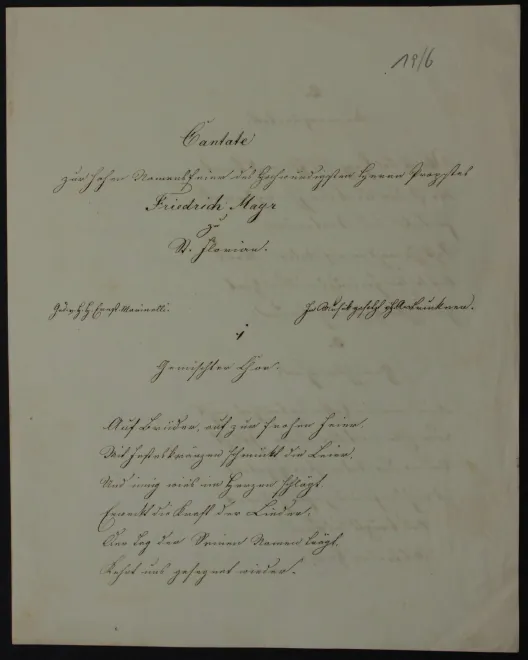 19/6
Cantate
zur hohen Namensfeier des Hochwürdigsten Herrn Propstes
Friedrich Mayr
zu
St. Florian.
Ged. v. H. Ernst Marinelli.
In Musik gesetzt v. A. Bruckner.
1
Gemischter Chor.
Auf Brüder, auf zur frohen Feier,
Mit Festeskränzen schmückt die Leier.
Und innig wie's im Herzen schlägt
Erweckt die Kraft der Lieder.
Der Tag der Seinen Namen trägt,
Kehrt uns gesegnet wieder.